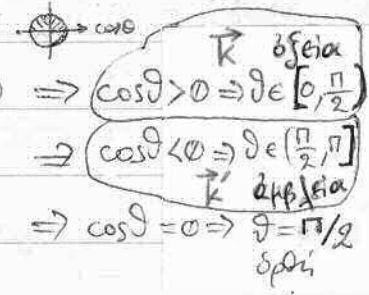 cosθ
k⃗ ὀξεία
⇒ cosθ>0 ⇒ θ ∈ [0, π/2)
⇒ cosθ<0 ⇒ θ ∈ (π/2, π]
k⃗' ἀμβλεία
⇒ cosθ = 0 ⇒ θ = π/2
ὀρθή